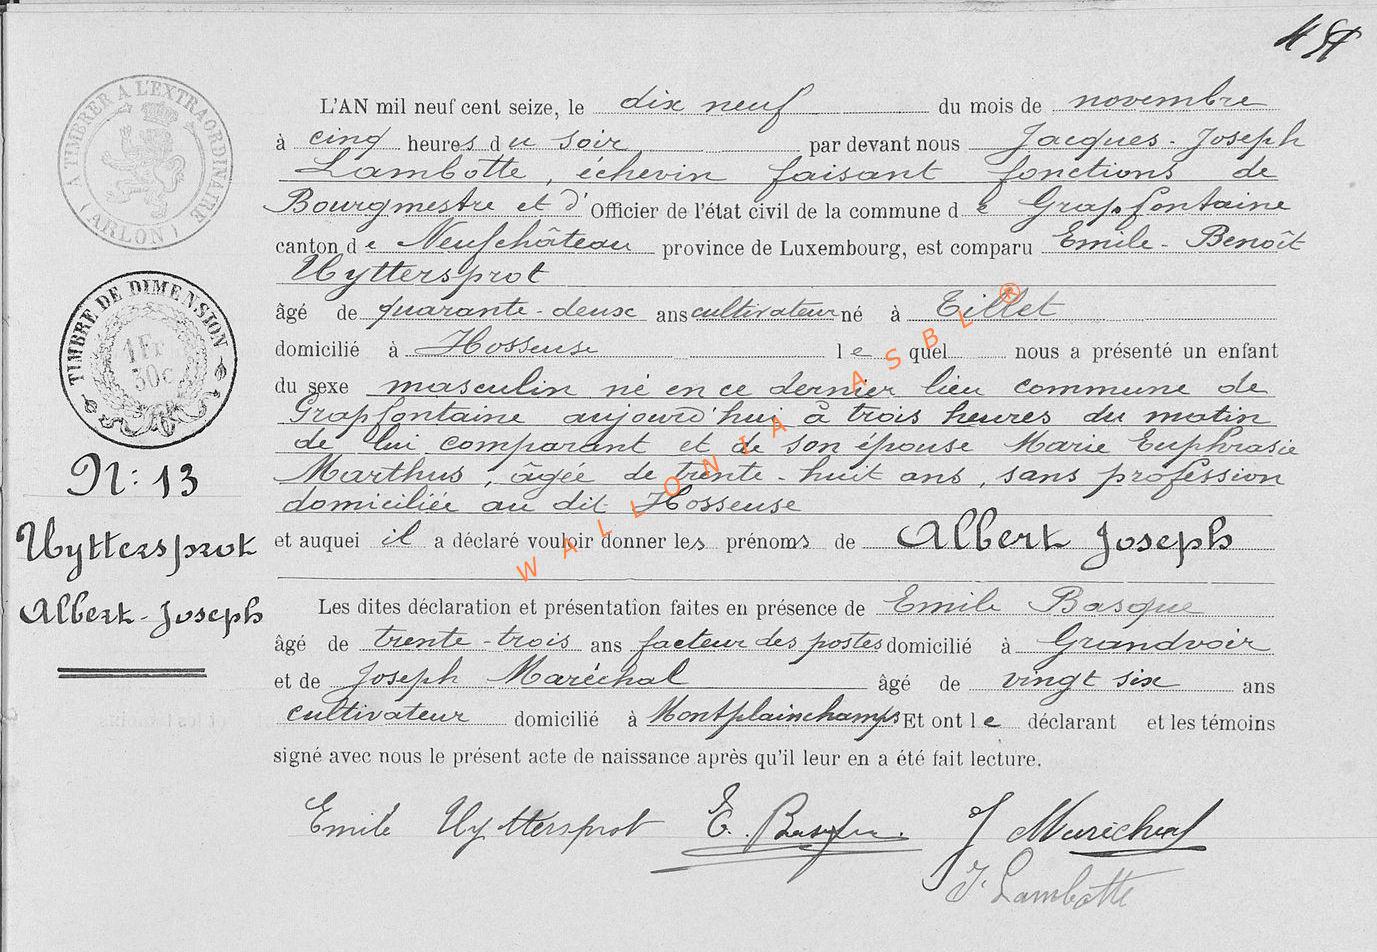 A TIMBRER A L'EXTRAORDINAIRE
(ARLON)
TIMBRE DE DIMENSION
1 Fr
50c
N: 13
Uyttersprot
Albert-Joseph
L'AN mil neuf cent seize, le dix neuf du mois de novembre
à cinq heures du soir par devant nous Jacques-Joseph
Lambotte, échevin faisant fonctions de
Bourgmestre et d'Officier de l'état civil de la commune de Grapfontaine
canton de Neufchâteau province de Luxembourg, est comparu Emile-Benoît
Uyttersprot
âgé de quarante-deux ans cultivateur né à Tillet
domicilié à Hosseuse lequel nous a présenté un enfant
du sexe masculin né en ce dernier lieu commune de
Grapfontaine aujourd'hui à trois heures du matin
de lui comparant et de son épouse Marie Euphrasie
Marthus, âgée de trente-huit ans, sans profession
domiciliée au dit Hosseuse
et auquei il a déclaré vouloir donner les prénoms de Albert Joseph
Les dites déclaration et présentation faites en présence de Emile Basque
âgé de trente-trois ans facteur des postes domicilié à Grandvoir
et de Joseph Maréchal âgé de vingt six ans
cultivateur domicilié à Montplainchamps Et ont le déclarant et les témoins
signé avec nous le présent acte de naissance après qu'il leur en a été fait lecture.
Emile Uyttersprot E. Basque J Maréchal
J. Lambotte
WALLONIA ASBL ®